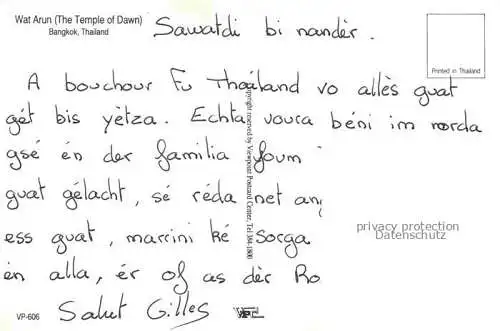 Wat Arun (The Temple of Dawn)
Bangkok, Thailand
Sawatdi bi nandèr.
Printed in Thailand
A bouchour Fu Thaáland vo allès guat
gét bis yètza. Echta voura béni im norda
gsé én der familia foum
guat gélacht, sé réda net ang
ess guat, marrini ké Sorga
én alla, ér of as dèr Ro
Salut Gilles
VP-606
Copyright reserved by Viewpoint Postcard Centre, Tel 384-1800
privacy protection
Datenschutz